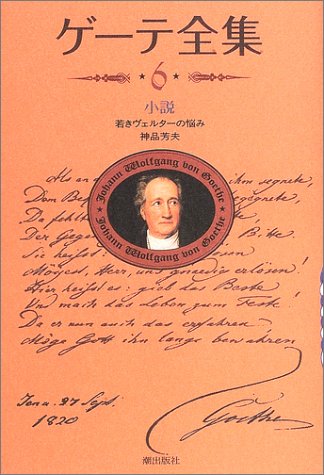 ゲーテ全集
6
小説
若きヴェルターの悩み
神品芳夫
Als an ihm segnete,
Dem Be
Da fehlt
Der Gege Bike
Sie heisst: lösen
Mögest, Herr, uns gnaedig erlösen!
Hier heisst es: gieb das Beste
Und mach das Leben zum Feste!
Da er nun auch das erfahren,
Möge Gott ihn lange bewahren
Johann Wolfgang von Goethe
Johann Wolfgang von Goethe
Jena. 27 Sept.
1820
Goethe
潮出版社